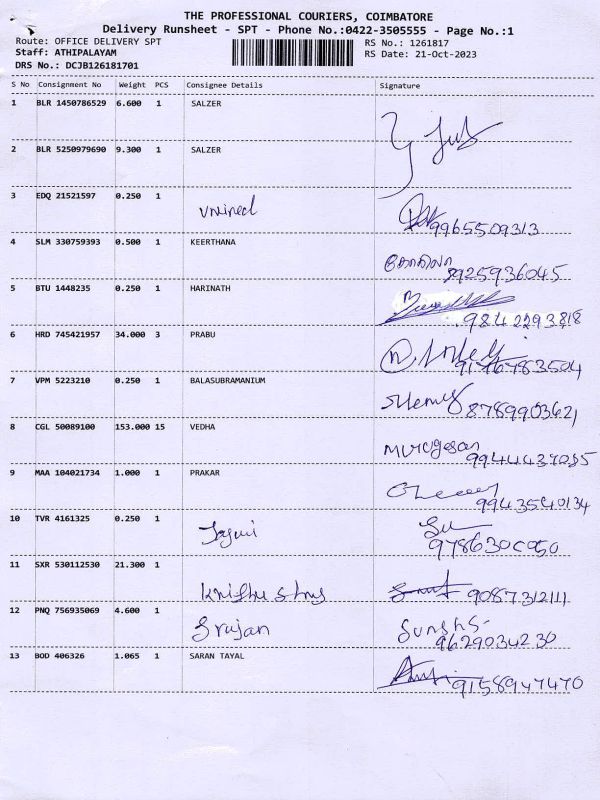 THE PROFESSIONAL COURIERS, COIMBATORE
Delivery Runsheet - SPT - Phone No.:0422-3505555 - Page No.:1
Route: OFFICE DELIVERY SPT
RS No.: 1261817
Staff: ATHIPALAYAM
RS Date: 21-Oct-2023
DRS No.: DCJB126181701
S No Consignment No Weight PCS Consignee Details Signature
1 BLR 1450786529 6.600 1 SALZER
2 BLR 5250979690 9.300 1 SALZER
3 EDQ 21521597 0.250 1
9965509313
4 SLM 330759393 0.500 1 KEERTHANA
கோகிலா 8925936045
5 BTU 1448235 0.250 1 HARINATH
9842293818
6 HRD 745421957 34.000 3 PRABU
9176783504
7 VPM 5223210 0.250 1 BALASUBRAMANIUM
8789903621
8 CGL 50089100 153.000 15 VEDHA
Murugesan
9944437085
9 MAA 104021734 1.000 1 PRAKAR
9943540134
10 TVR 4161325 0.250 1
9786300050
11 SXR 530112530 21.300 1
9087312111
12 PNQ 756935069 4.600 1
Srujan
9629034230
13 BOD 406326 1.065 1 SARAN TAYAL
9158947470